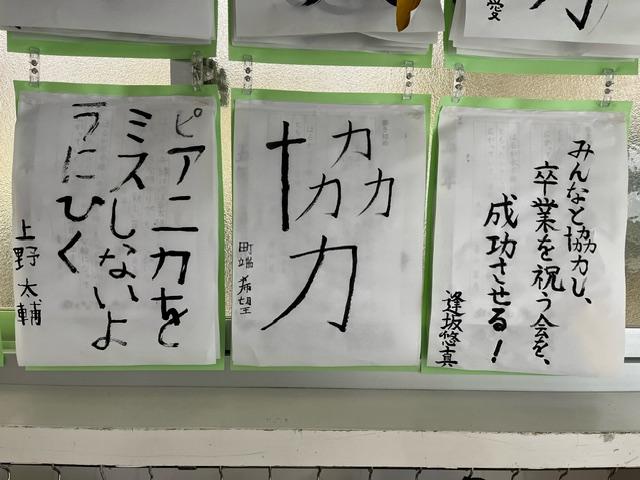 ピアニカを
ミスしないよ
うにひく
上野 太輔
協力
町端 希望
みんなと協力し、
卒業を祝う会を、
成功させる!
逢坂悠真
愛